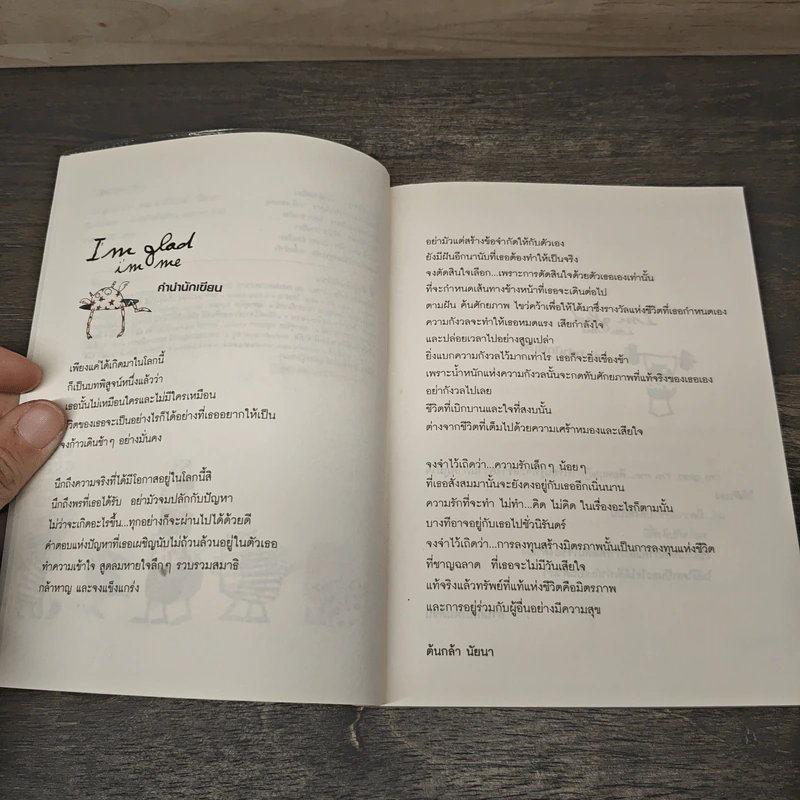 I'm glad
im me
คำนำนักเขียน
เพียงแค่ได้เกิดมาในโลกนี้
ก็เป็นบทพิสูจน์หนึ่งแล้วว่า
เธอนั้นไม่เหมือนใครและไม่มีใครเหมือน
วิตของเธอจะเป็นอย่างไรก็ได้อย่างที่เธออยากให้เป็น
จงก้าวเดินช้าๆ อย่างมั่นคง
นึกถึงความจริงที่ได้มีโอกาสอยู่ในโลกนี้สิ
นึกถึงพรที่เธอได้รับ อย่ามัวจมปลักกับปัญหา
ไม่ว่าจะเกิดอะไรขึ้น...ทุกอย่างก็จะผ่านไปได้ด้วยดี
คำตอบแห่งปัญหาที่เธอเผชิญนับไม่ถ้วนล้วนอยู่ในตัวเธอ
ทำความเข้าใจ สูดลมหายใจลึกๆ รวบรวมสมาธิ
กล้าหาญ และจงแข็งแกร่ง
อย่ามัวแต่สร้างข้อจำกัดให้กับตัวเอง
ยังมีฝันอีกนานับที่เธอต้องทำให้เป็นจริง
จงตัดสินใจเลือก...เพราะการตัดสินใจด้วยตัวเธอเองเท่านั้น
ที่จะกำหนดเส้นทางข้างหน้าที่เธอจะเดินต่อไป
ตามฝัน ค้นศักยภาพ ไขว่คว้าเพื่อให้ได้มาซึ่งรางวัลแห่งชีวิตที่เธอกำหนดเอง
ความกังวลจะทำให้เธอหมดแรง เสียกำลังใจ
และปล่อยเวลาไปอย่างสูญเปล่า
ยิ่งแบกความกังวลไว้มากเท่าไร เธอก็จะยิ่งเชื่องช้า
เพราะน้ำหนักแห่งความกังวลนั้นจะกดทับศักยภาพที่แท้จริงของเธอเอง
อย่ากังวลไปเลย
ชีวิตที่เบิกบานและใจที่สงบนั้น
ต่างจากชีวิตที่เต็มไปด้วยความเศร้าหมองและเสียใจ
จงจำไว้เถิดว่า...ความรักเล็กๆ น้อยๆ
ที่เธอสั่งสมมานั้นจะยังคงอยู่กับเธออีกเนิ่นนาน
ความรักที่จะทำ ไม่ทำ...คิด ไม่คิด ในเรื่องอะไรก็ตามนั้น
บางทีอาจอยู่กับเธอไปชั่วนิรันดร์
จงจำไว้เถิดว่า...การลงทุนสร้างมิตรภาพนั้นเป็นการลงทุนแห่งชีวิต
ที่ชาญฉลาด ที่เธอจะไม่มีวันเสียใจ
แท้จริงแล้วทรัพย์ที่แท้แห่งชีวิตคือมิตรภาพ
และการอยู่ร่วมกับผู้อื่นอย่างมีความสุข
ต้นกล้า นัยนา